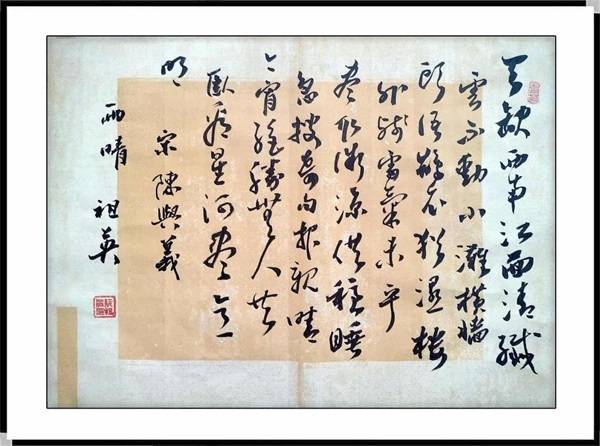 天缺西南江面清纖
雲不動小灘橫墻
頭語鵲衣猶濕樓
外殘雷氣未平
盡取微涼供穩睡
急搜奇句報新晴
今宵絕勝無人共
臥看星河盡意
明 宋 陳與義
雨晴 祖英